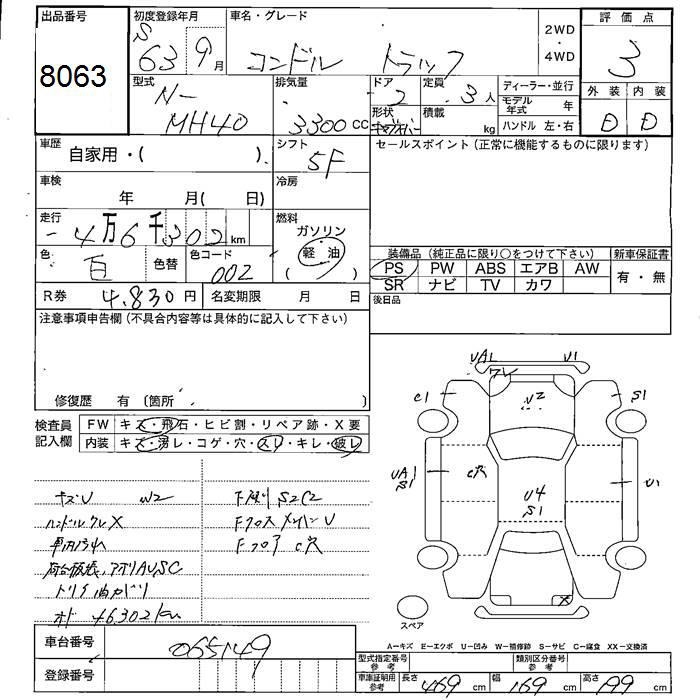 出品番号
8063
初度登録年月
S 63 9月
車名・グレード
コンドル トラック
2WD
・
4WD
評価点
3
型式
N-
MH40
排気量
3300 cc
ドア
2
形状
定員
3人
積載
kg
ディーラー・並行
モデル年式 年
ハンドル 左・右
外装 内装
D D
車歴
自家用・( )
シフト
5F
セールスポイント (正常に機能するものに限ります)
車検
年 月( 日)
冷房
走行
4万6千302km
燃料
ガソリン
軽油
( )
色
白
色替
色コード
002
装備品 (純正品に限り○をつけて下さい)
PS PW ABS エアB AW
SR ナビ TV カワ
新車保証書
有・無
R券 4,830円
名変期限 月 日
後日品
注意事項申告欄 (不具合内容等は具体的に記入して下さい)
修復歴 有 〔箇所 〕
検査員記入欄
FW キズ・飛石・ヒビ割・リペア跡・X要
内装 キズ・汚レ・コゲ・穴・スレ・キレ・破レ
キズU W2
ハンドルクレX
車内汚れ
下廻り S2C2
Fクロスメンバー U
Fフロア C穴
オド 46302km
UA1 U1
ワレ
C1 U2 S1
UA1
S1
C穴
U4
S1
U1
X
スペア
A―キズ E―エクボ U―凹み W―補修跡 S―サビ C―腐食 XX―交換済
車台番号
065149
登録番号
型式指定番号
参考
類別区分番号
参考
車庫証明用
参考
長さ 469 cm 幅 169 cm 高さ 199 cm